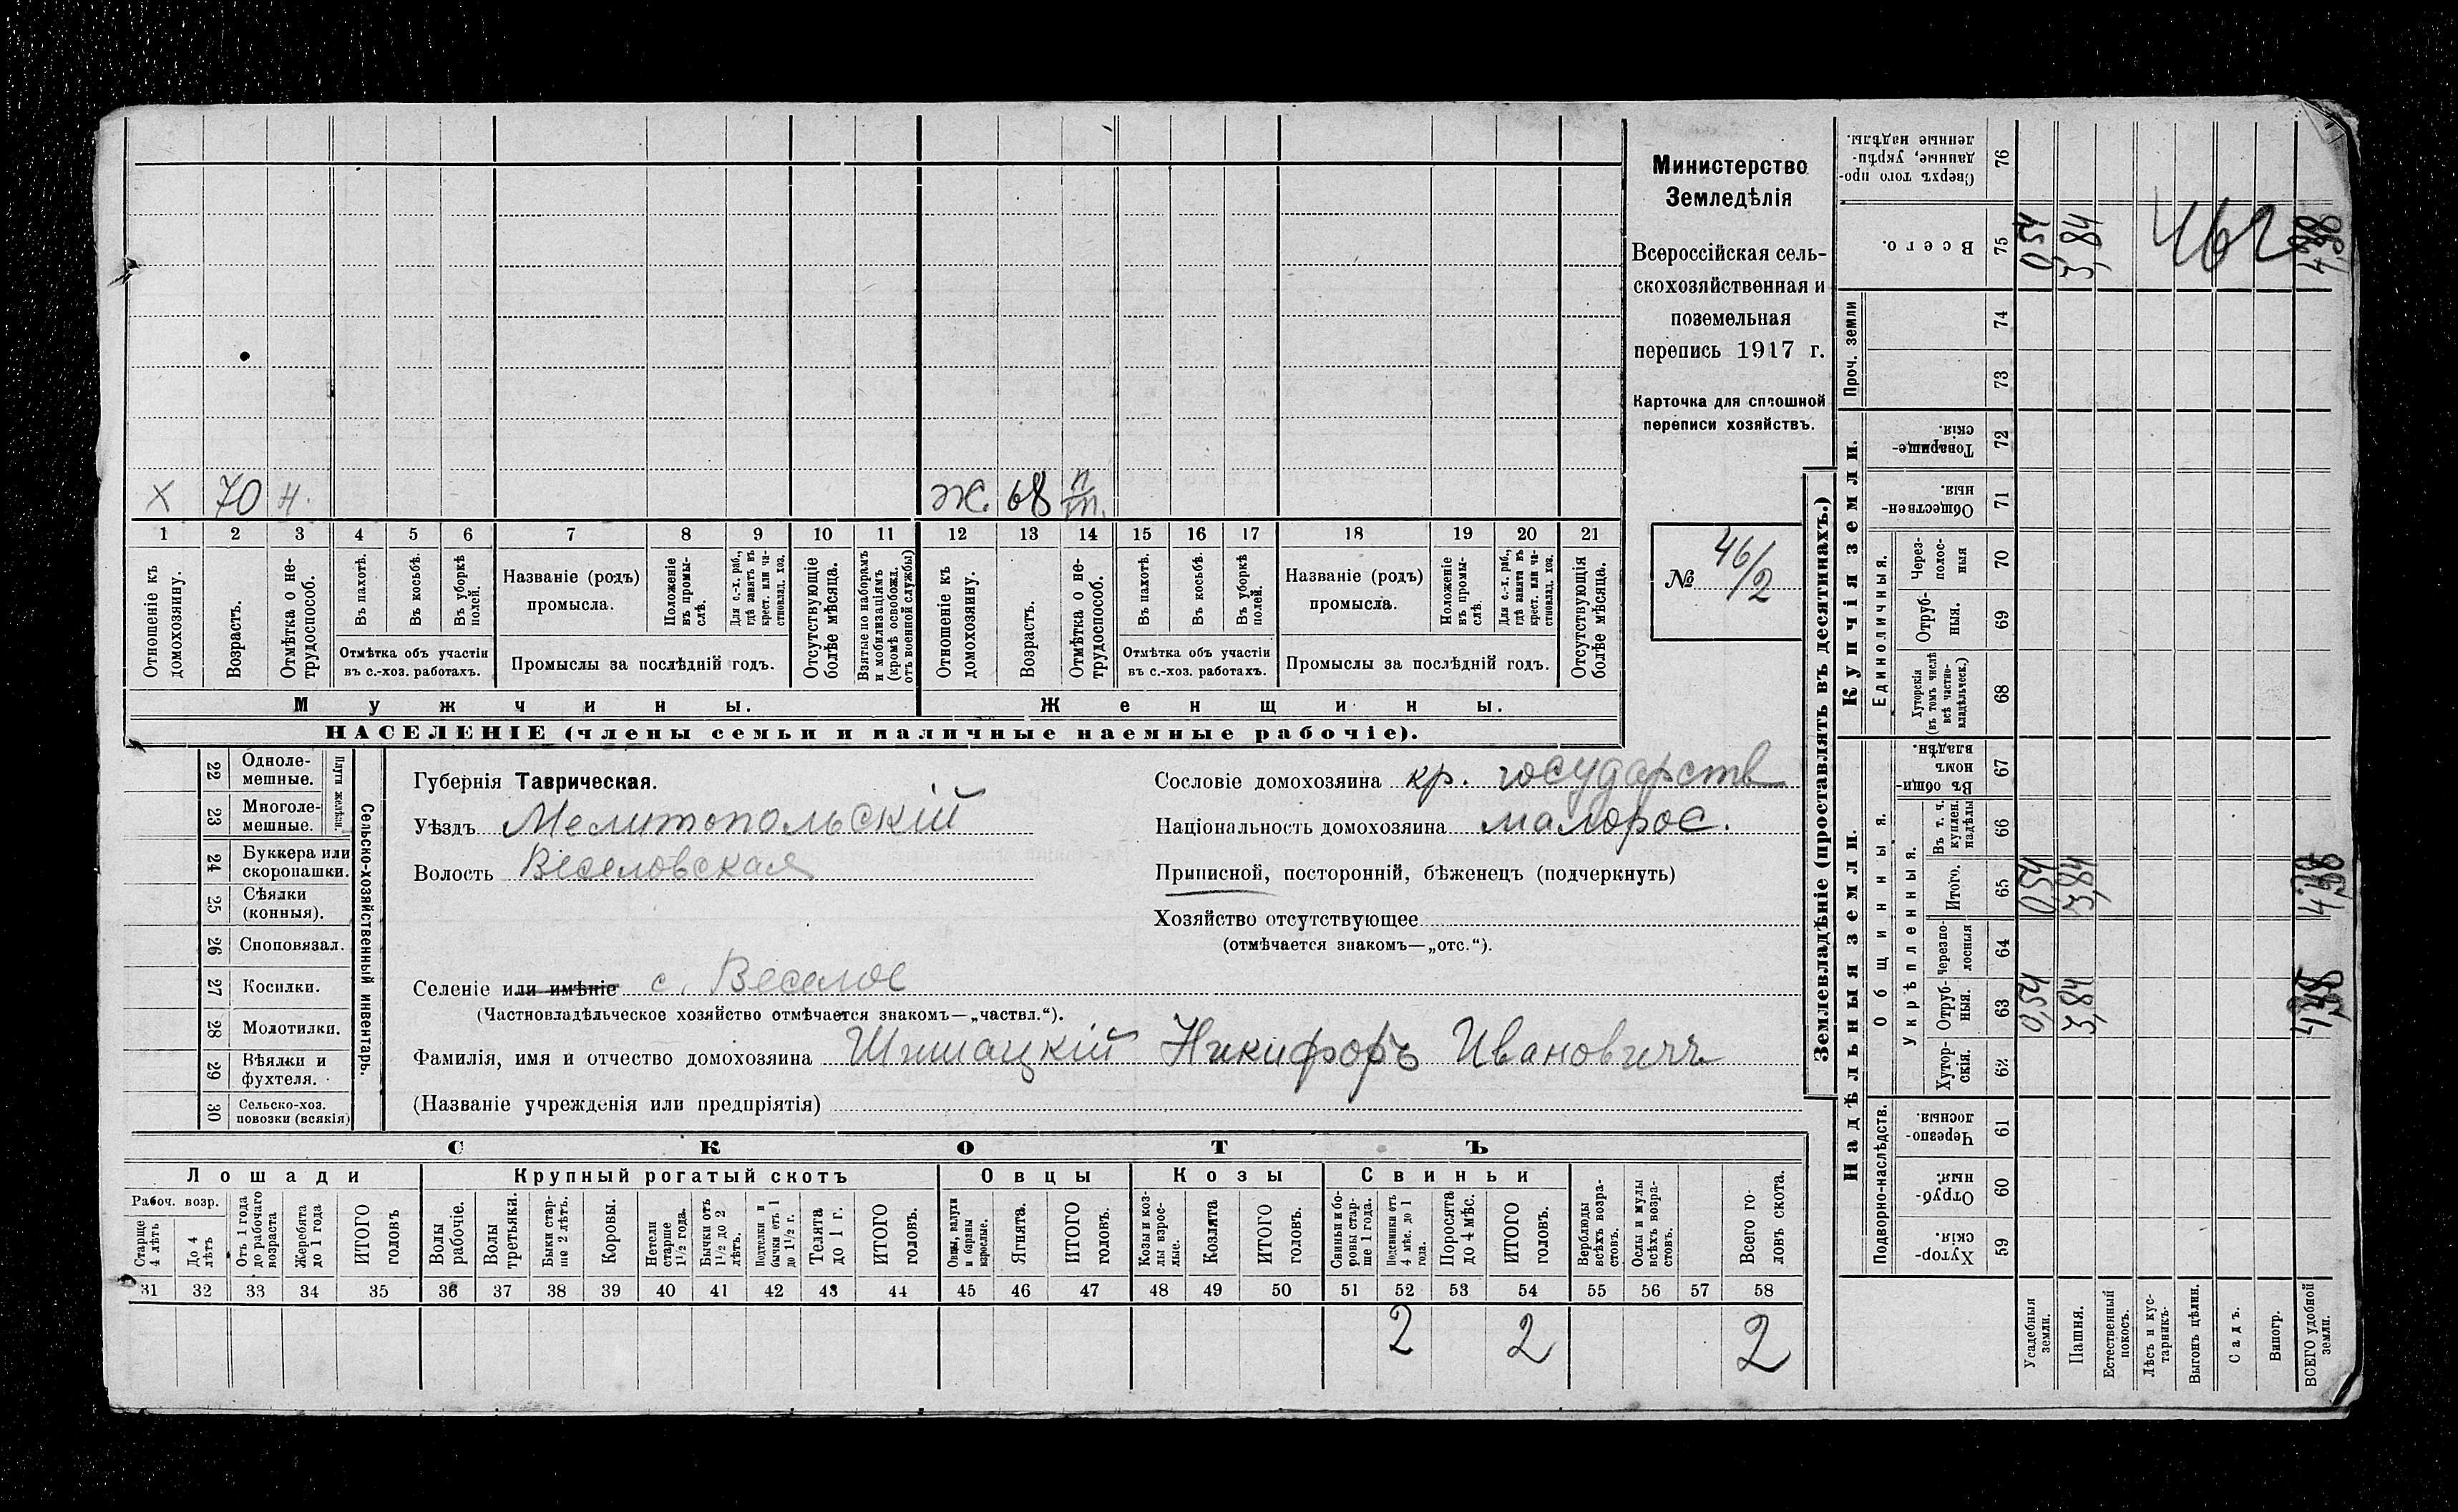 Министерство
Земледѣлія
Всероссійская сель-
скохозяйственная и
поземельная
перепись 1917 г.
Карточка для сплошной
переписи хозяйствъ.
№ 46/2
Х 70 н. Ж. 68 п/т.
1 2 3 4 5 6 7 8 9 10 11 12 13 14 15 16 17 18 19 20 21
Отношеніе къ домохозяину.
Возрастъ.
Отмѣтка о не-трудоспособ.
Въ пахотѣ.
Въ косьбѣ.
Въ уборкѣ полей.
Отмѣтка объ участіи
въ с.-хоз. работахъ.
Названіе (родъ)
промысла.
Положеніе въ промы-слѣ.
Для с.-х. раб., гдѣ занятъ въ крест. или ча-стновлад. хоз.
Промыслы за послѣдній годъ.
Отсутствующіе болѣе мѣсяца.
Взятые по наборамъ и мобилизаціямъ (кромѣ освобожд. отъ военной службы)
Отношеніе къ домохозяину.
Возрастъ.
Отмѣтка о не-трудоспособ.
Въ пахотѣ.
Въ косьбѣ.
Въ уборкѣ полей.
Отмѣтка объ участіи
въ с.-хоз. работахъ.
Названіе (родъ)
промысла.
Положеніе въ промы-слѣ.
Для с.-х. раб., гдѣ занята въ крест. или ча-стновлад. хоз.
Промыслы за послѣдній годъ.
Отсутствующія болѣе мѣсяца.
Мужчины. Женщины.
НАСЕЛЕНІЕ (члены семьи и наличные наемные рабочіе).
22 Одноле-мешные.
23 Многоле-мешные.
Плуги желѣзн.
24 Буккера или скоропашки.
25 Сѣялки (конныя).
26 Споповязал.
27 Косилки.
28 Молотилки.
29 Вѣялки и фухтеля.
30 Сельско-хоз. повозки (всякія)
Сельско-хозяйственный инвентарь.
Губернія Таврическая.
Уѣздъ Мелитопольскій
Волость Веселовская
Сословіе домохозяина кр. государств
Національность домохозяина малорос.
Приписной, посторонній, бѣженецъ (подчеркнуть)
Хозяйство отсутствующее
(отмѣчается знакомъ—„отс.“).
Селеніе или имѣніе с. Веселое
(Частновладѣльческое хозяйство отмѣчается знакомъ—„частвл.“).
Фамилія, имя и отчество домохозяина Шишацкій Никифоръ Ивановичъ
(Названіе учрежденія или предпріятія)
СКОТЪ
Лошади Крупный рогатый скотъ Овцы Козы Свиньи
Рабоч. возр.
Старше 4 лѣтъ
До 4 лѣтъ
Отъ 1 года до рабочаго возраста
Жеребята до 1 года
ИТОГО головъ
Волы рабочіе.
Волы третьяки.
Быки стар-ше 2 лѣтъ.
Коровы.
Нетели старше 1½ года.
Бычки отъ 1½ до 2 лѣтъ.
Подтелки и бычки отъ 1 до 1½ г.
Телята до 1 г.
ИТОГО головъ.
Овцы, валухи и бараны взрослые.
Ягнята.
ИТОГО головъ.
Козы и коз-лы взрос-лые.
Козлята
ИТОГО головъ.
Свиньи и бо-ровы стар-ше 1 года.
Подсвинки отъ 4 мѣс. до 1 года.
Поросята до 4 мѣс.
ИТОГО головъ.
Верблюды всѣхъ возра-стовъ.
Ослы и мулы всѣхъ возра-стовъ.
Всего го-ловъ скота.
31 32 33 34 35 36 37 38 39 40 41 42 43 44 45 46 47 48 49 50 51 52 53 54 55 56 57 58
2 2 2
Землевладѣніе (проставлять въ десятинахъ.)
Надѣльныя земли. Купчія земли. Проч. земли
Подворно-наслѣдств.
Общинныя.
Укрѣпленныя.
Единоличныя.
Хутор-скія. 59
Отруб-ныя. 60
Черезпо-лосныя 61
Хутор-скія. 62
Отруб-ныя. 63 0,54 3,84
Черезпо-лосныя 64
Итого. 65 0,54 3,84
Въ т. ч. куплен. надѣлы 66
Въ общи-номъ владѣн. 67
Хуторскія (въ томъ числѣ всѣ частно-владѣльческ.) 68
Отруб-ныя. 69
Через-полос-ныя 70
Обществен-ныя. 71
Товарище-скія. 72
73
74
Всего. 75 0,54 3,84 462
Сверхъ того про-данные, укрѣп-ленные надѣлы. 76
Усадебныя земли.
Пашня.
Естественный покосъ.
Лѣсъ и кус-тарникъ.
Выгонъ цѣлин.
Садъ.
Виногр.
ВСЕГО удобной земли.